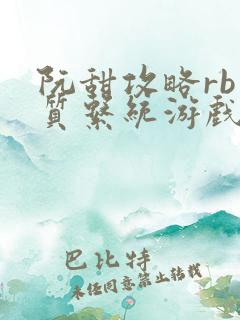 阮甜攻略rb
质系统游戏
巴比特
未经同意禁止转载